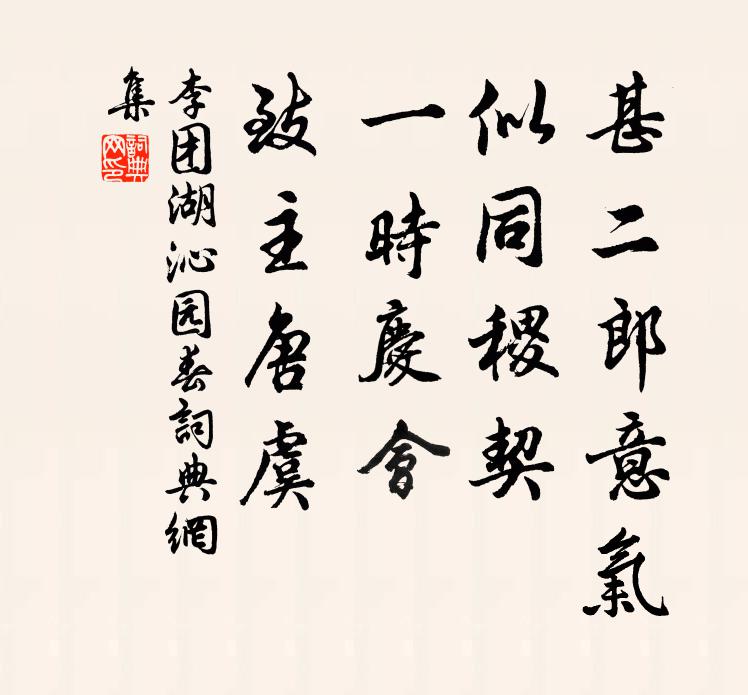 甚二郎意氣
似同稷契
一時慶會
致主唐虞
李团湖沁园春詞典網
集
詞典网印